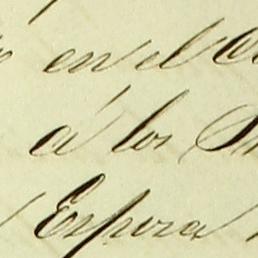 en el
á los
Espera